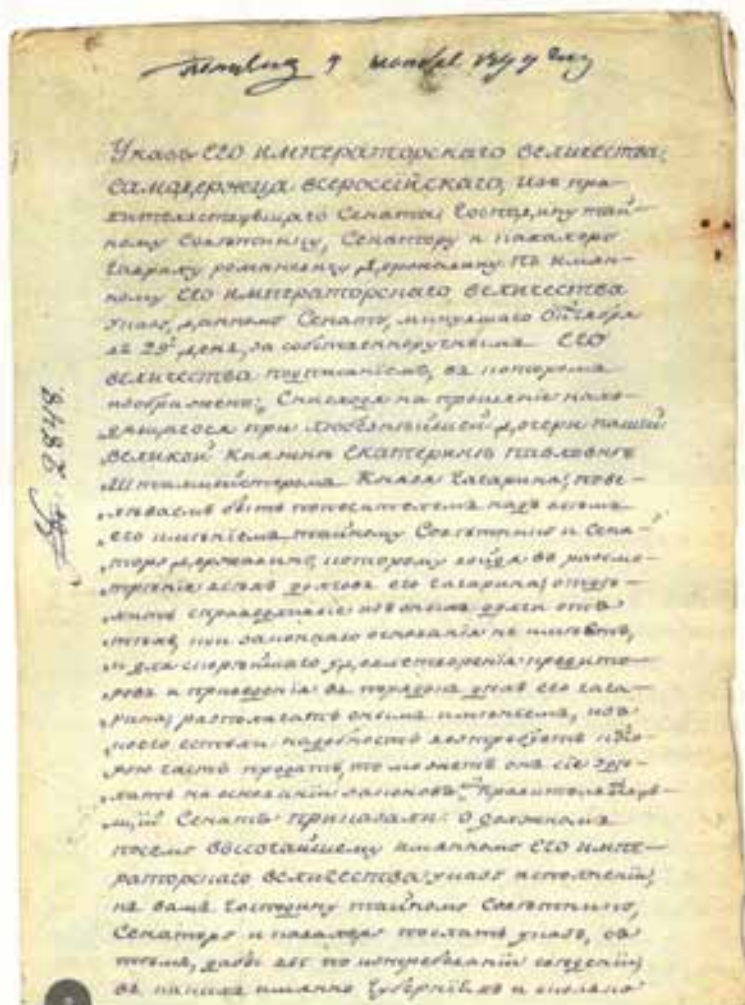 9 ноября
Указъ ЕГО ИМПЕРАТОРСКАГО ВЕЛИЧЕСТВА,
САМОДЕРЖЦА ВСЕРОССІЙСКАГО, изъ пра-
вительствующаго Сената; Господину тай-
ному Совѣтнику, Сенатору и кавалеру
Гаврилу романовичу Державину. По имян-
ному ЕГО ИМПЕРАТОРСКАГО ВЕЛИЧЕСТВА
указу, данному Сенату, минувшаго Октября
въ 29й день, за собственноручнымъ ЕГО
ВЕЛИЧЕСТВА подписаніемъ, въ которомъ
изображено: Снисходя на прошеніе нахо-
дящагося при любезнѣйшей дочери нашей
ВЕЛИКОЙ КНЯЖНѢ ЕКАТЕРИНѢ ПАВЛОВНѢ
Шталмейстеромъ Князя Гагарина; пове-
лѣваемъ быть попечителемъ надъ всемъ
его имѣніемъ тайному Совѣтнику и Сена-
тору державину, которому войдя въ разсмо-
трѣніе всѣхъ долговъ его Гагарина; отдѣ-
лить справедливые изъ оныхъ долги отъ
тѣхъ, кои законнаго основанія не имѣютъ,
и для скорѣйшаго удовлетворенія кредито-
ровъ и приведенія въ порядокъ дѣлъ его гага-
рина; располагать онымъ имѣніемъ, изъ
коего естьли надобность востребуетъ нѣко-
рую часть продать, то можетъ онъ сіе здѣ-
лать на основаніи законовъ. Правительствую-
щій Сенатъ приказали: О должномъ
посему высочайшему имянному ЕГО ИМПЕ-
РАТОРСКАГО ВЕЛИЧЕСТВА указу исполненіи,
къ вамъ Господину тайному Совѣтнику,
Сенатору и кавалеру послать указъ, съ
тѣмъ, дабы вы по истребованіи свѣденій,
въ какихъ имянно Губерніяхъ и сколько
№ 2848.